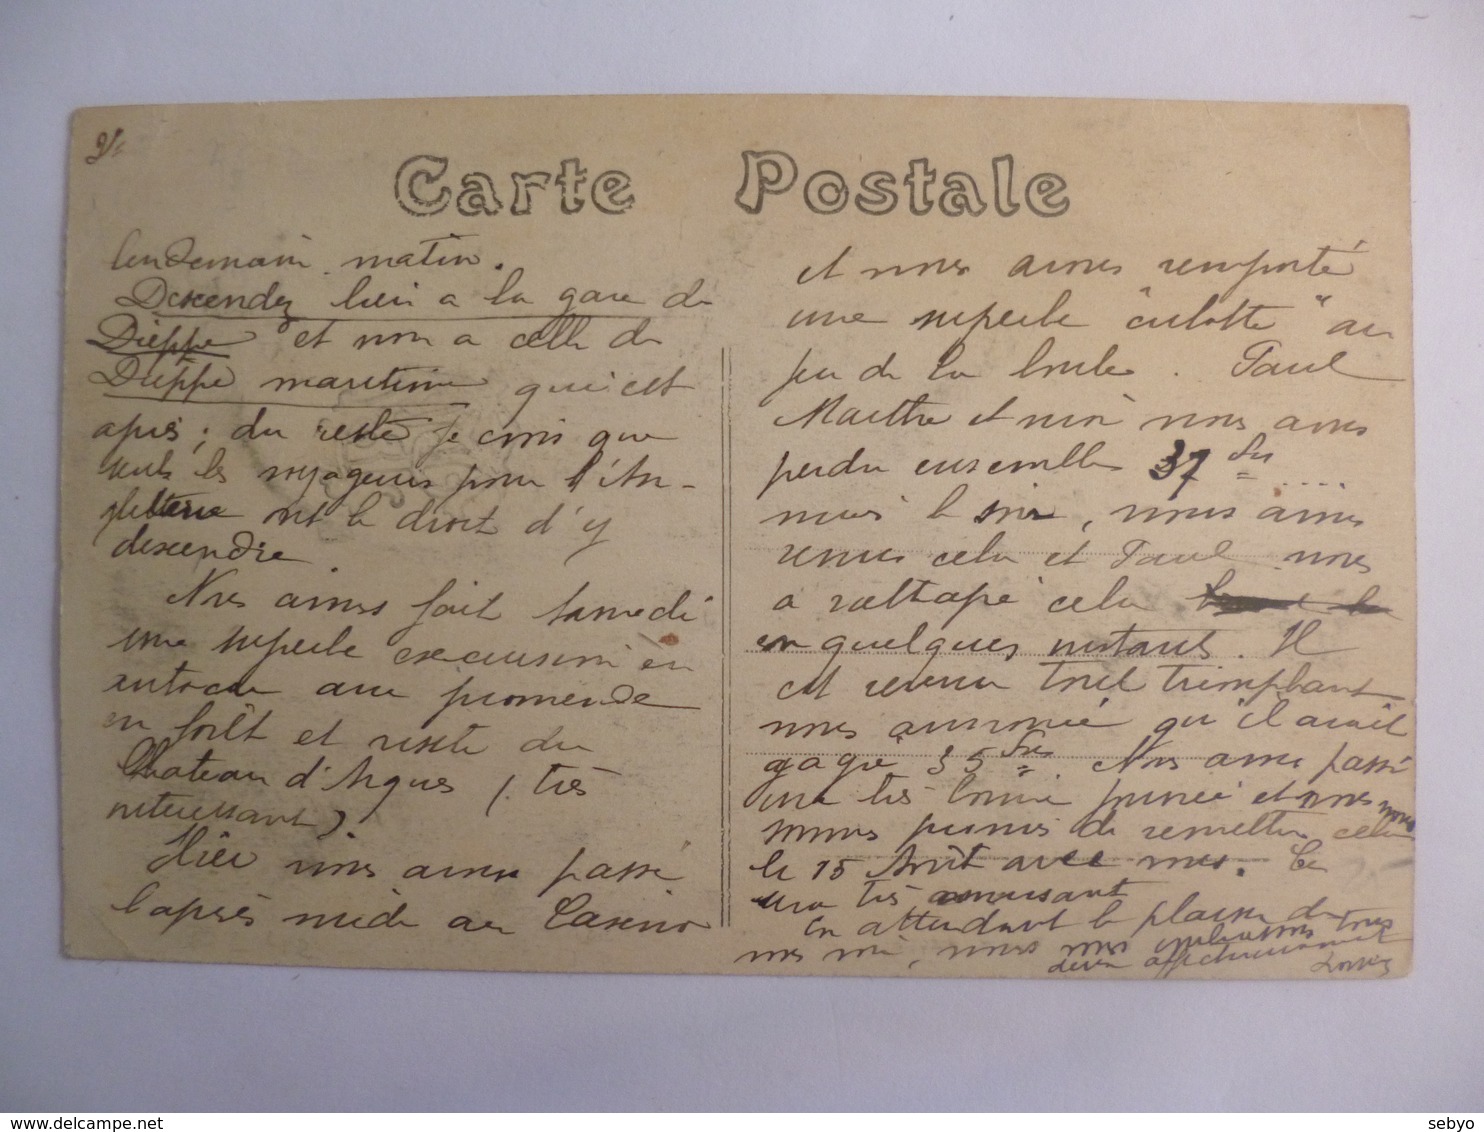 2/
Carte Postale
lendemain matin.
Descendez bien a la gare de
Dieppe et non a celle de
Dieppe maritime qui est
après ; du reste je crois que
seuls les voyageurs pour l'An-
gleterre ont le droit d'y
descendre
Nous avons fait samedi
une superbe excursion en
autocar avec promenade
en forêt et visite du
Chateau d'Arques ( très
interessant ).
Hier nous avons passé
l'après midi au Casino
et nous avons remporté
une superbe "culotte" au
jeu de la boule. Paul
Marthe et moi nous avons
perdu ensemble 37 frs ....
mais le soir, nous avons
revenus cela et Paul nous
a rattrapé cela
en quelques instants. Il
est revenu tout triomphant
nous annoncé qu'il avait
gagné 35 frs. Nous avons passé
une très bonne journée et nous nous
sommes promis de remettre cela
le 15 Août avec vous. Ce
sera très amusant
En attendant le plaisir de
vous voir, nous vous embrassons tous
deux affectueusement